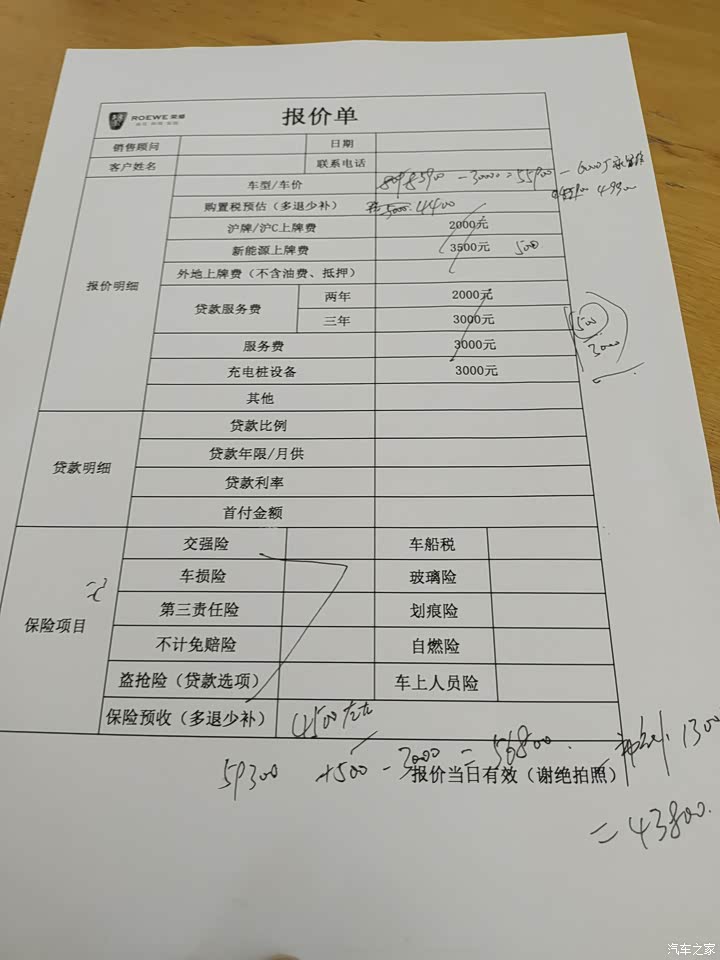 ROEWE 荣威
报价单
销售顾问 日期
客户姓名 联系电话
报价明细
车型/车价 85900 - 30000 = 55900 - 6000
购置税预估（多退少补） 5000 4400
49900
沪牌/沪C上牌费 2000元
新能源上牌费 3500元 500
外地上牌费（不含油费、抵押）
贷款服务费 两年 2000元
三年 3000元
500
3000
服务费 3000元
充电桩设备 3000元
其他
贷款明细
贷款比例
贷款年限/月供
贷款利率
首付金额
保险项目
交强险 车船税
车损险 玻璃险
第三责任险 划痕险
不计免赔险 自燃险
盗抢险（贷款选项） 车上人员险
保险预收（多退少补） 4500左右
59300 +500 - 3000 = 56800
1300
报价当日有效（谢绝拍照）
= 43800.
汽车之家